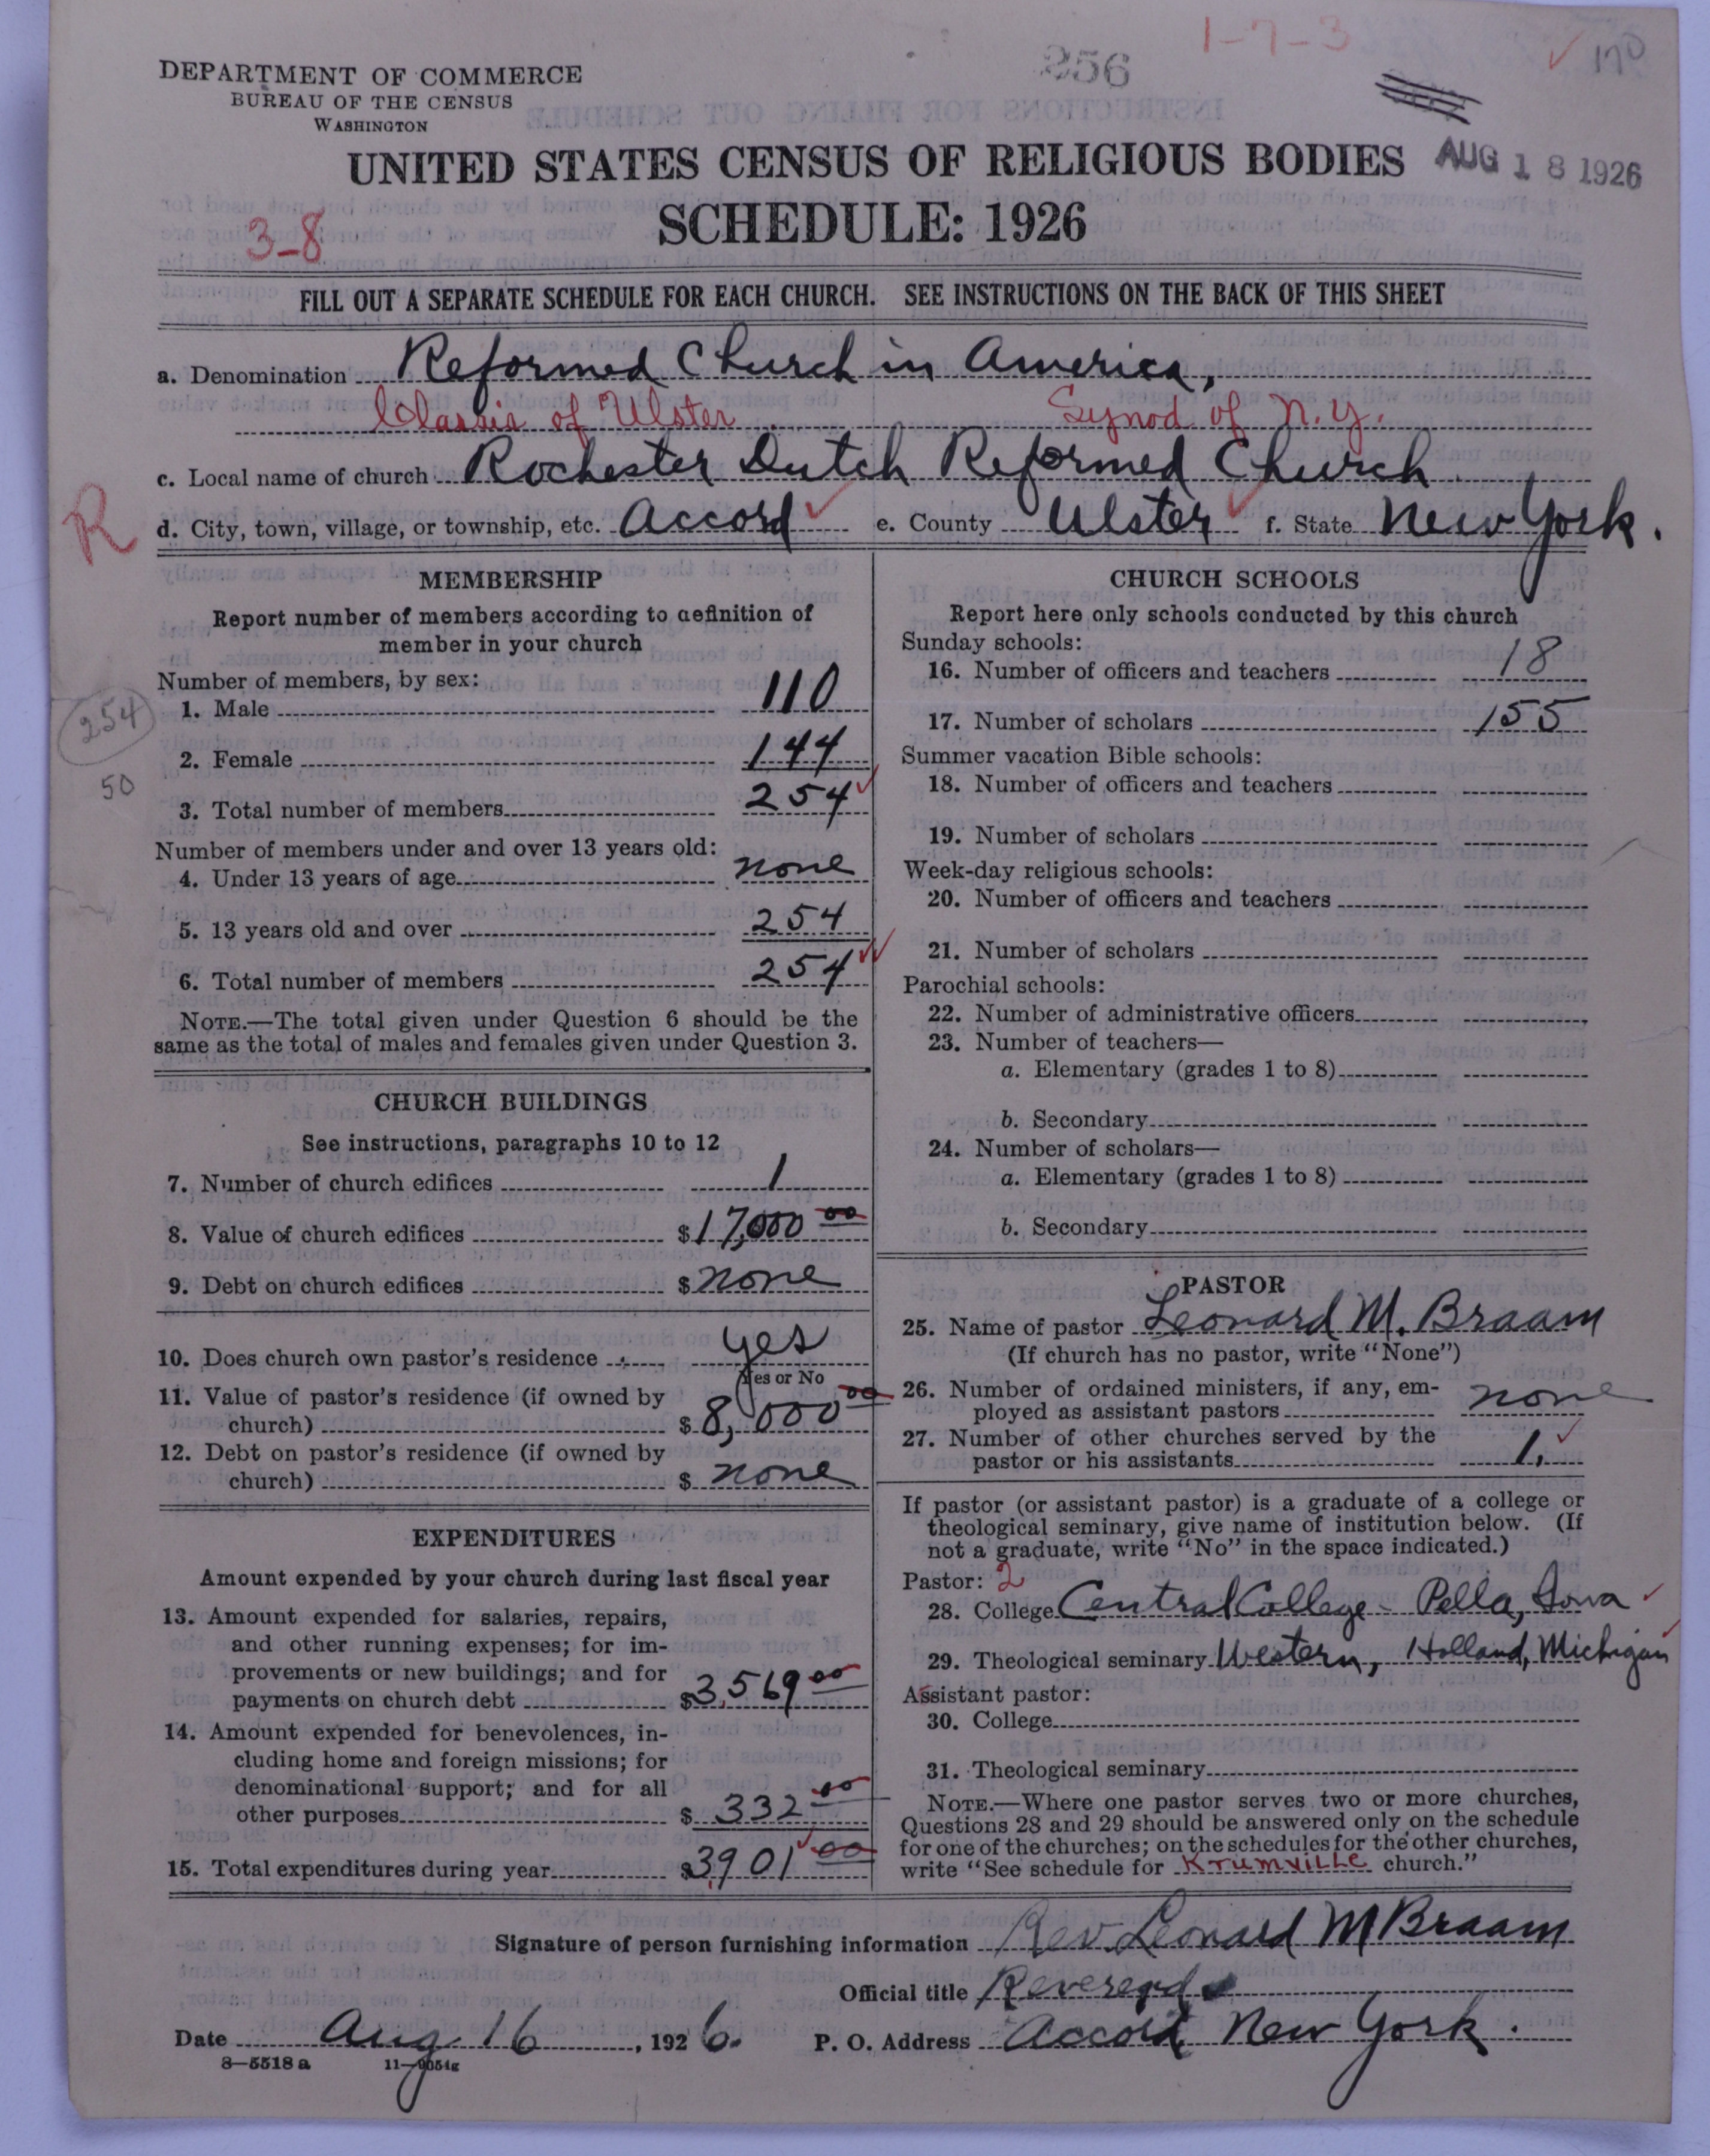 1-7-3
256
170
DEPARTMENT OF COMMERCE
BUREAU OF THE CENSUS
WASHINGTON
UNITED STATES CENSUS OF RELIGIOUS BODIES
AUG 18 1926
SCHEDULE: 1926
3-8
FILL OUT A SEPARATE SCHEDULE FOR EACH CHURCH. SEE INSTRUCTIONS ON THE BACK OF THIS SHEET
a. Denomination Reformed Church in America,
Classis of Ulster Synod of N.Y.
c. Local name of church Rochester Dutch Reformed Church
R
d. City, town, village, or township, etc. Accord e. County Ulster f. State New York.
MEMBERSHIP
Report number of members according to definition of
member in your church
Number of members, by sex:
1. Male 110
254
2. Female 144
50
3. Total number of members 254
Number of members under and over 13 years old:
4. Under 13 years of age none
5. 13 years old and over 254
6. Total number of members 254
NOTE.—The total given under Question 6 should be the
same as the total of males and females given under Question 3.
CHURCH BUILDINGS
See instructions, paragraphs 10 to 12
7. Number of church edifices 1
8. Value of church edifices $17,000 00
9. Debt on church edifices $ none
10. Does church own pastor's residence yes
Yes or No
11. Value of pastor's residence (if owned by
church) $ 8,000 00
12. Debt on pastor's residence (if owned by
church) $ none
EXPENDITURES
Amount expended by your church during last fiscal year
13. Amount expended for salaries, repairs,
and other running expenses; for im-
provements or new buildings; and for
payments on church debt $3,569 00
14. Amount expended for benevolences, in-
cluding home and foreign missions; for
denominational support; and for all
other purposes $ 332 00
15. Total expenditures during year $3,901 00
CHURCH SCHOOLS
Report here only schools conducted by this church
Sunday schools:
16. Number of officers and teachers 18
17. Number of scholars 155
Summer vacation Bible schools:
18. Number of officers and teachers
19. Number of scholars
Week-day religious schools:
20. Number of officers and teachers
21. Number of scholars
Parochial schools:
22. Number of administrative officers
23. Number of teachers—
a. Elementary (grades 1 to 8)
b. Secondary
24. Number of scholars—
a. Elementary (grades 1 to 8)
b. Secondary
PASTOR
25. Name of pastor Leonard M. Braam
(If church has no pastor, write "None")
26. Number of ordained ministers, if any, em-
ployed as assistant pastors none
27. Number of other churches served by the
pastor or his assistants 1.
If pastor (or assistant pastor) is a graduate of a college or
theological seminary, give name of institution below. (If
not a graduate, write "No" in the space indicated.)
Pastor: 2
28. College Central College - Pella, Iowa
29. Theological seminary Western, Holland, Michigan
Assistant pastor:
30. College
31. Theological seminary
NOTE.—Where one pastor serves two or more churches,
Questions 28 and 29 should be answered only on the schedule
for one of the churches; on the schedules for the other churches,
write "See schedule for KRUMVILLE church."
Signature of person furnishing information Rev. Leonard M Braam
Official title Reverend
Date Aug 16, 1926. P. O. Address Accord, New York.
8—5518 a 11—9054g